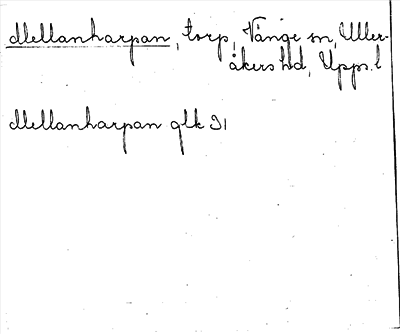 Mellanharpan, torp, Vänge sn, Uller-
åkers hd, Upps. l
Mellanharpan glk 31